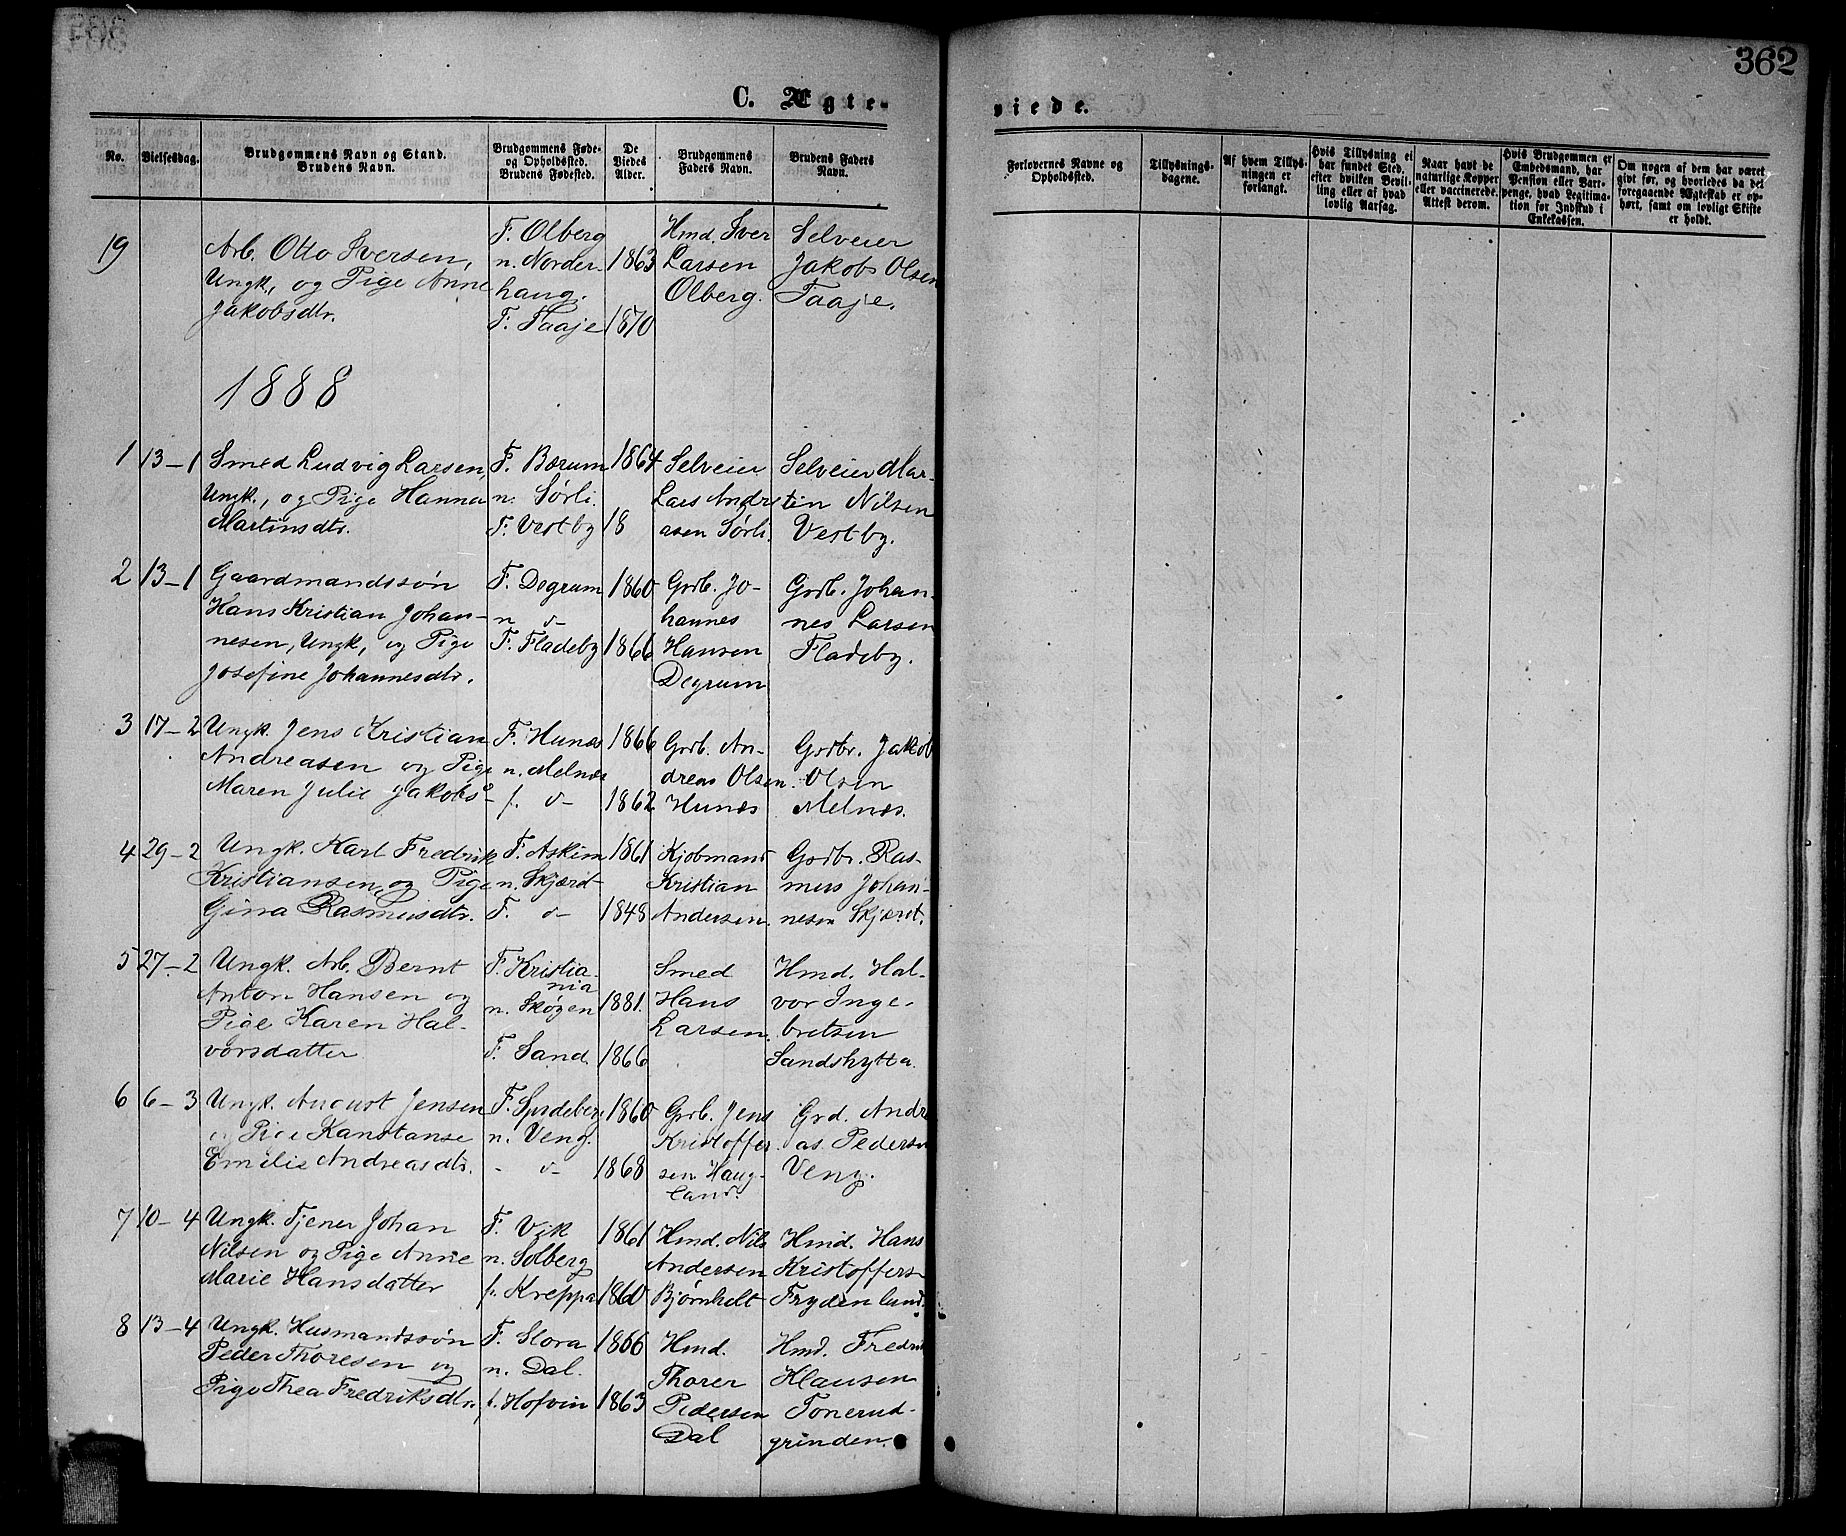 362
C. Ægte-
viede.
No.
Vielsesdag.
Brudgommens Navn og Stand.
Brudens Navn.
Brudgommens Føde-
og Opholdssted.
Brudens Fødested.
De
Viedes
Alder.
Brudgommens
Faders Navn.
Brudens Faders
Navn.
Forlovernes Navne og
Opholdssted.
Tillysnings-
dagene.
Af hvem Tillys-
ningen er
forlangt.
Hvis Tillysning ei
har fundet Sted,
efter hvilken Bevil-
ling eller af hvad
lovlig Aarsag.
Naar havt de
naturlige Kopper
eller vaccinerede.
Attest derom.
Hvis Brudgommen er
Embedsmand, har
Pension eller Vart-
penge, hvad Legitima-
tion for Indskud i
Enkekassen.
Om nogen af dem har været
gift før, og hvorledes da det
foregaaende Ægteskab er op-
hørt, samt om lovligt Skifte
er holdt.
19
Arb. Otto Iversen,
Ungk, og Pige Anne
Jakobsdtr.
F. Olberg
n. Norder-
haug.
F. Taaje
1863
1870
Hmd. Iver
Larsen
Olberg.
Selveier
Jakob Olsen
Taaje.
1888
1
13-1
Smed Ludvig Larsen,
Ungk., og Pige Hanna
Martinsdtr.
F. Bærum
n. Sørli
F. Vestby
1864
18
Selveier
Lars Andre
asen Sørli.
Selveier Mar-
tin Nilsen
Vestby.
2
13-1
Gaardmandssøn
Hans Kristian Johan-
nesen, Ungk, og Pige
Josefine Johannesdtr.
F. Degrum
n -
F. Fladeby
1860
1866
Grdb. Jo-
hannes
Hansen
Degrum
Grdb. Johan-
nes Larsen
Fladeby.
3
17-2
Ungk. Jens Kristian
Andreasen og Pige
Maren Julie Jakobs-
F. Hunæs
n. Melnæs
f. -
1866
1862
Grdb. An-
dreas Olsen
Hunæs
Grdbr. Jakob
Olsen
Melnæs.
4
29-2
Ungk. Karl Fredrik
Kristiansen, og Pige
Gina Rasmusdtr.
F. Askim
n. Skjærst
F. -
1861
1848
Kjøbmand
Kristian
Andersen
Grdbr. Ras-
mus Johan-
nesen Skjæret.
5
27-2
Ungk. Arb. Bernt
Anton Hansen og
Pige Karen Hal-
vorsdatter
F. Kristia-
nia
n. Skogen
F. Sand
1881.
1866
Smed
Hans
Larsen.
Hmd. Hal-
vor Inge-
bretsen
Sandshytta.
6
6-3
Ungk. August Jensen
og Pige Kanstanse
Emilie Andreasdtr.
F. Spydeberg
n. Veng.
- -
1860
1868
Grdb. Jens
Kristoffer-
sen Haug-
land.
Grd. Andre
as. Pedersen
Veng.
7
10-4
Ungk. Tjener Johan
Nilsen og Pige Anne
Marie Hansdatter
F. Vik
n. Solberg
f. Kreppa
1861
1860
Hmd. Nils
Andersen
Bjørnholt
Hmd. Hans
Kristoffers-
Frydenlund.
8
13-4
Ungk. Husmandssøn
Peder Thoresen og
Pige Thea Fredriksdtr.
F. Slora
n. Dal.
f. Hofvin
1866
1863
Hmd.
Thorer
Pedersen
Dal
Hmd. Fredrik
Klausen
Tonerud-
grinden.